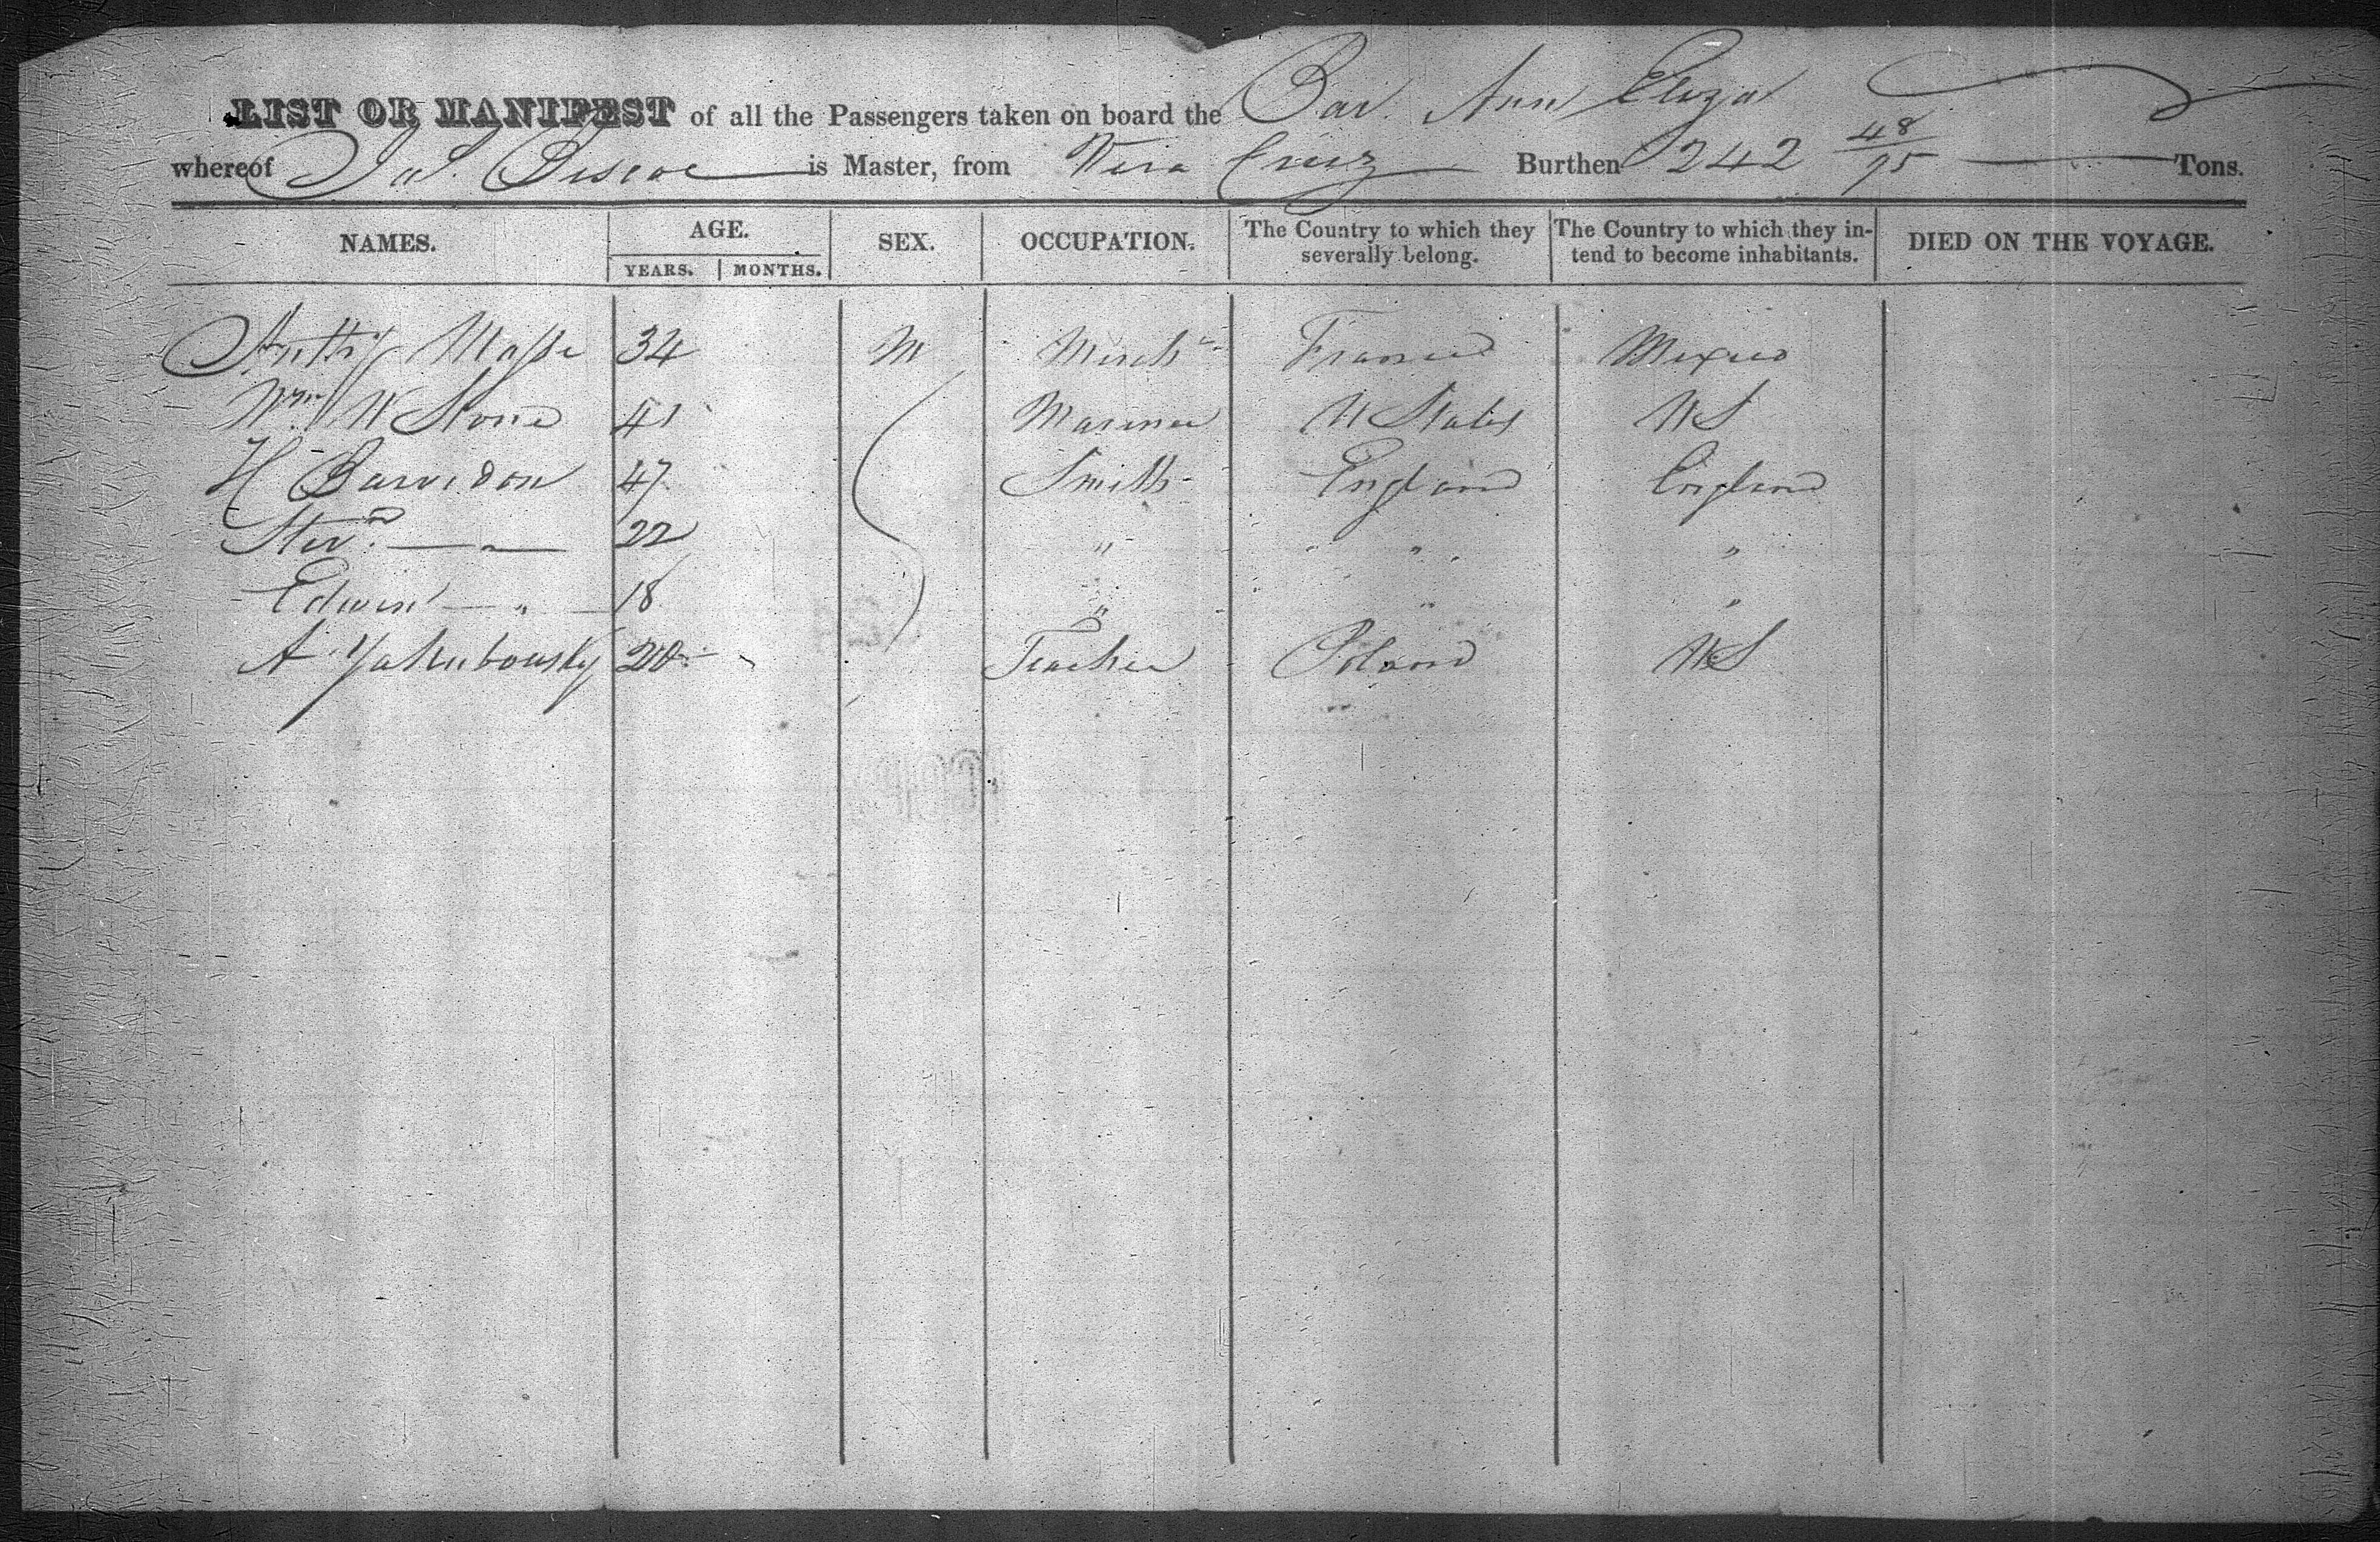 LIST OR MANIFEST of all the Passengers taken on board the Bar. Ann Eliza
whereof Jas. Biscoe is Master, from Vera Cruz Burthen 242 48/95 Tons.
NAMES. AGE. SEX. OCCUPATION. The Country to which they severally belong. The Country to which they intend to become inhabitants. DIED ON THE VOYAGE.
YEARS. MONTHS.
Anthy Masse 34 M Mercht France Mexico
Wm W Stone 41 Mariner U States US
H 47 Smith England England
22 " " "
Edwin " 18 " " "
A Yakubousky Teacher Poland US